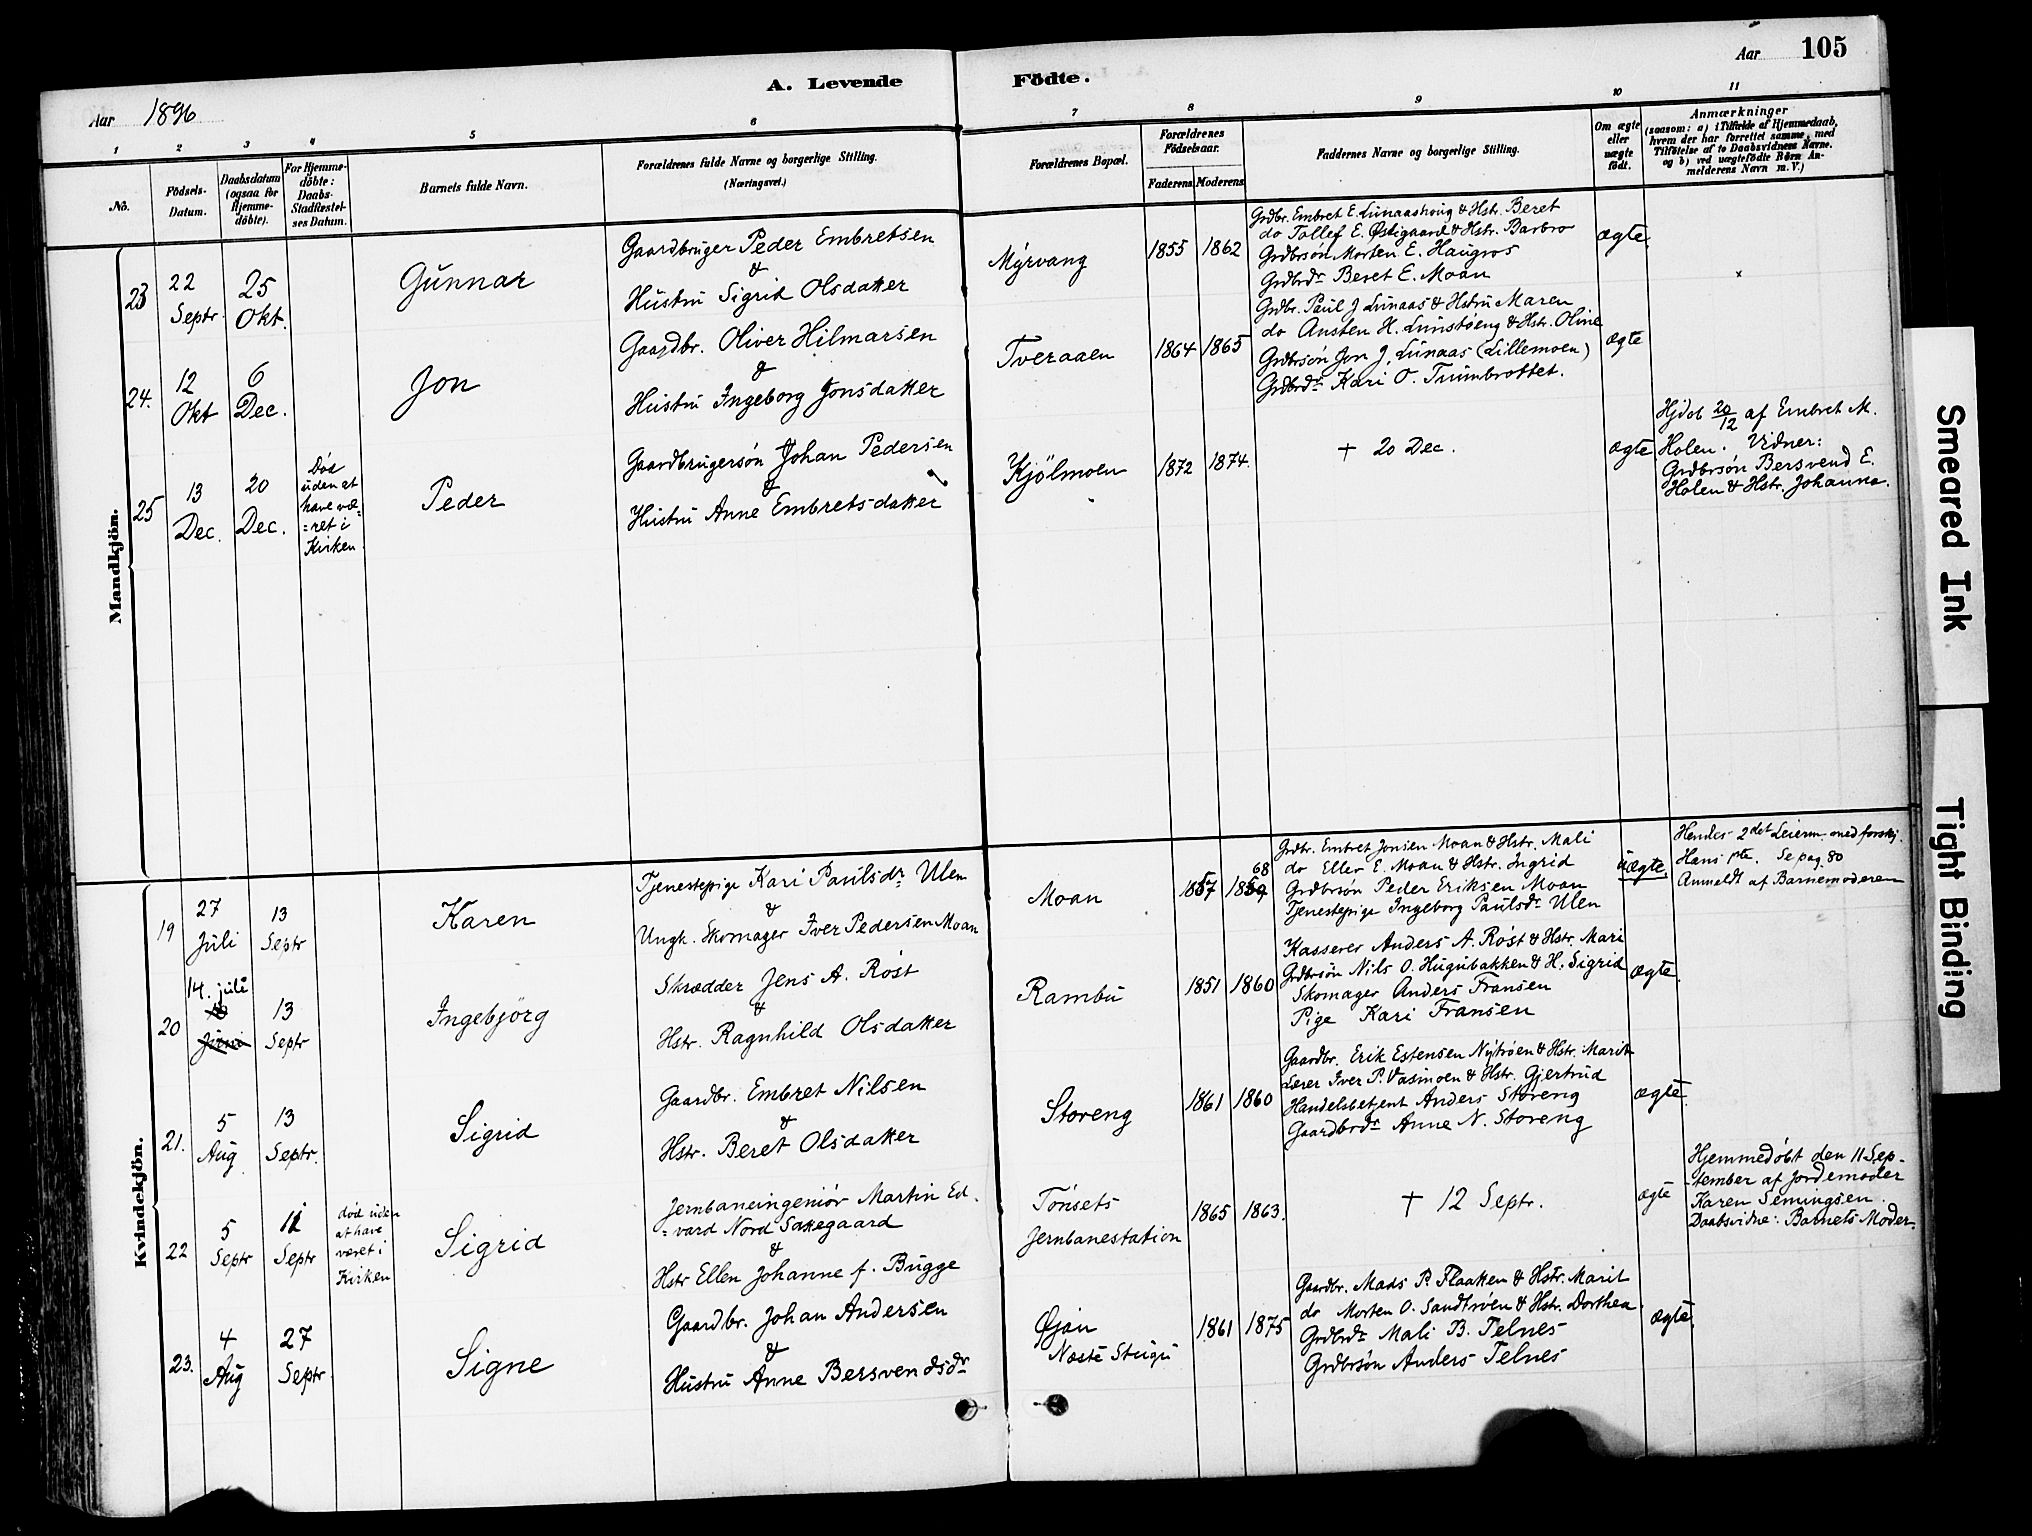 A. Levende Födte.
Aar 105
Aar 1896
1 2 3 4 5 6 7 8 9 10 11
No.
Födsels-Datum.
Daabsdatum (ogsaa for Hjemme-döbte).
For Hjemme-döbte: Daabs-Stadfæstel-ses Datum.
Barnets fulde Navn.
Forældrenes fulde Navne og borgerlige Stilling.
(Næringsvei.)
Forældrenes Bopæl.
Forældrenes Födselsaar.
Faderens Moderens
Faddernes Navne og borgerlige Stilling.
Om ægte eller uægte födt.
Anmærkninger
(saasom: a) i Tilfælde af Hjemmedaab, hvem der har forrettet samme, med Tilföielse af to Daabsvidners Navne. og b) ved uægtefödte Börn An-melderens Navn m. V.)
Mandkjön.
23
22 Septr.
25 Okt.
Gunnar
Gaardbruger Peder Embretsen
&
Hustru Sigrid Olsdatter
Myrvang
1855 1862
Grdbr. Embret E. Lunaashaug & Hstr. Beret
do Tollef E. Østigaard & Hstr. Barbro
Grdbrsön Morten E. Haugros
Grdbrdr. Beret E. Moan
ægte
24.
12 Okt
6 Dec.
Jon
Gaardbr. Oliver Hilmarsen
&
Hustru Ingeborg Jonsdatter
Tveraaen
1864 1865
Grdbr. Paul J Lunaas & Hstru Maren
do Austen H. Lunstøeng & Hstr. Oline
Grdbrsön Jon J. Lunaas (Lillemoen)
Grdbrdr. Kari O. Trumbrottet.
ægte
25
13 Dec.
20 Dec.
Död
uden at
have væ=
=ret i
Kirken.
Peder
Gaardbrugersön Johan Pedersen
&
Hustru Anne Embretsdatter
Kjölmoen
1872 1874.
† 20 Dec.
ægte
Hjdöb 20/12 af Embret M.
Holen. Vidner:
Grdbrsön Bersvend E.
Holen & Hstr. Johanna.
Kvindekjön.
19
27 Juli
13 Septr
Karen
Tjenestepige Kari Paulsdr. Ulen
&
Ungk. Skomager Iver Pedersen Moan
Moan
1857 1859 68
Grdbr. Embret Jonsen Moan & Hstr. Mali
do Ellev E. Moan & Hstr. Ingrid
Grdbrsön Peder Eriksen Moan
Tjenestepige Ingeborg Paulsdr. Ulen
uægte.
Hendes 2det Leierm. med forskj.
Hans 1ste. Se pag 80
Anmeldt af Barnemoderen
20
14. juli
Juni
13 Septr
Ingebjörg
Skrædder Jens A. Röst
&
Hstr. Ragnhild Olsdatter
Rambu
1851 1860
Kasserer Anders A. Röst & Hstr. Mari
Grdbrsön Nils O. Hugubakken & H. Sigrid
Skomager Anders Fransen
Pige Kari Fransen
ægte.
21.
5 Aug.
13 Septr.
Sigrid
Gaardbr. Embret Nilsen
&
Hstr. Beret Olsdatter
Storeng
1861 1860
Gaardbr. Erik Estensen Nytröen & Hstr. Marit
Lærer Iver P. Vasmoen & Hstr. Gjertrud
Handelsbetjent Anders Storeng
Gaardbrdr. Anne N. Storeng
ægte.
22
5 Septr
11 Septr
död uden
at have
været i
Kirken
Sigrid
Jernbaneingeniör Martin Ed.
=vard Nord Sattegaard
&
Hstr Ellen Johanne f. Bugge
Tönsets
Jernbanestation
1865 1863.
† 12 Septr.
ægte
Hjemmedöbt den 11 Sep-
tember af Jordemoder
Karen Semingsen.
Daabsvidne: Barnets Moder.
23.
4 Aug
27 Septr.
Signe
Gaardbr. Johan Andersen
&
Hustru Anne Bersvendsdr.
Øjan
1861 1875
Gaardbr. Mads P. Flaatten & Hstr. Marit
do Morten O. Sandtröen & Hstr. Dorthea.
Grdbrdr. Mali B. Telnes
Grdbrsön Anders Telnes
ægte.
Smeared Ink
Tight Binding